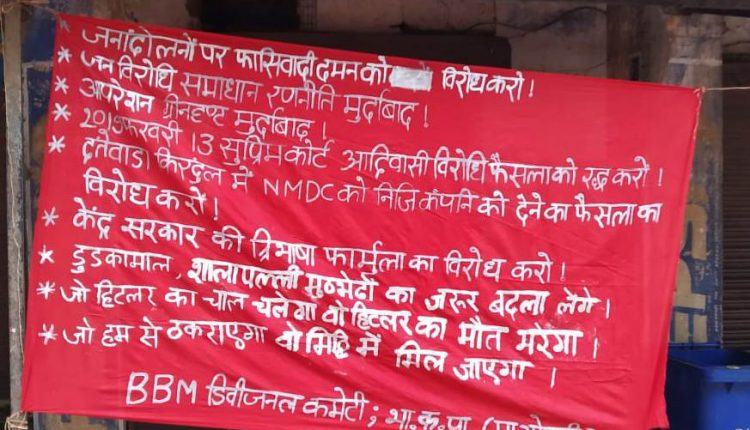 * जनांदोलनों पर फासिवादी दमन को विरोध करो!
* जन विरोधि समाधान रणनीति मुर्दाबाद!
* आपरेशन ग्रीनहण्ट मुर्दाबाद!
* 2019 फरवरी 13 सुप्रिम कोर्ट आदिवासी विरोधि फैसला को रद्ध करो!
* दंतेवाडा किरंदुल में NMDC को निजि कंपनि को देने का फैसला का
विरोध करो!
* केंद्र सरकार की त्रिभाषा फार्मुला का विरोध करो!
* डुडकामाल, शालापल्ली मुठभेढों का जरुर बदला लेंगे।
* जो हिटलर का चाल चलेगा वो हिटलर का मौत मरेगा।
* जो हम से ठकराएगा वो मिट्टि में मिल जाएगा।
BBM डिवीजनल कमेटी; भा.क.पा